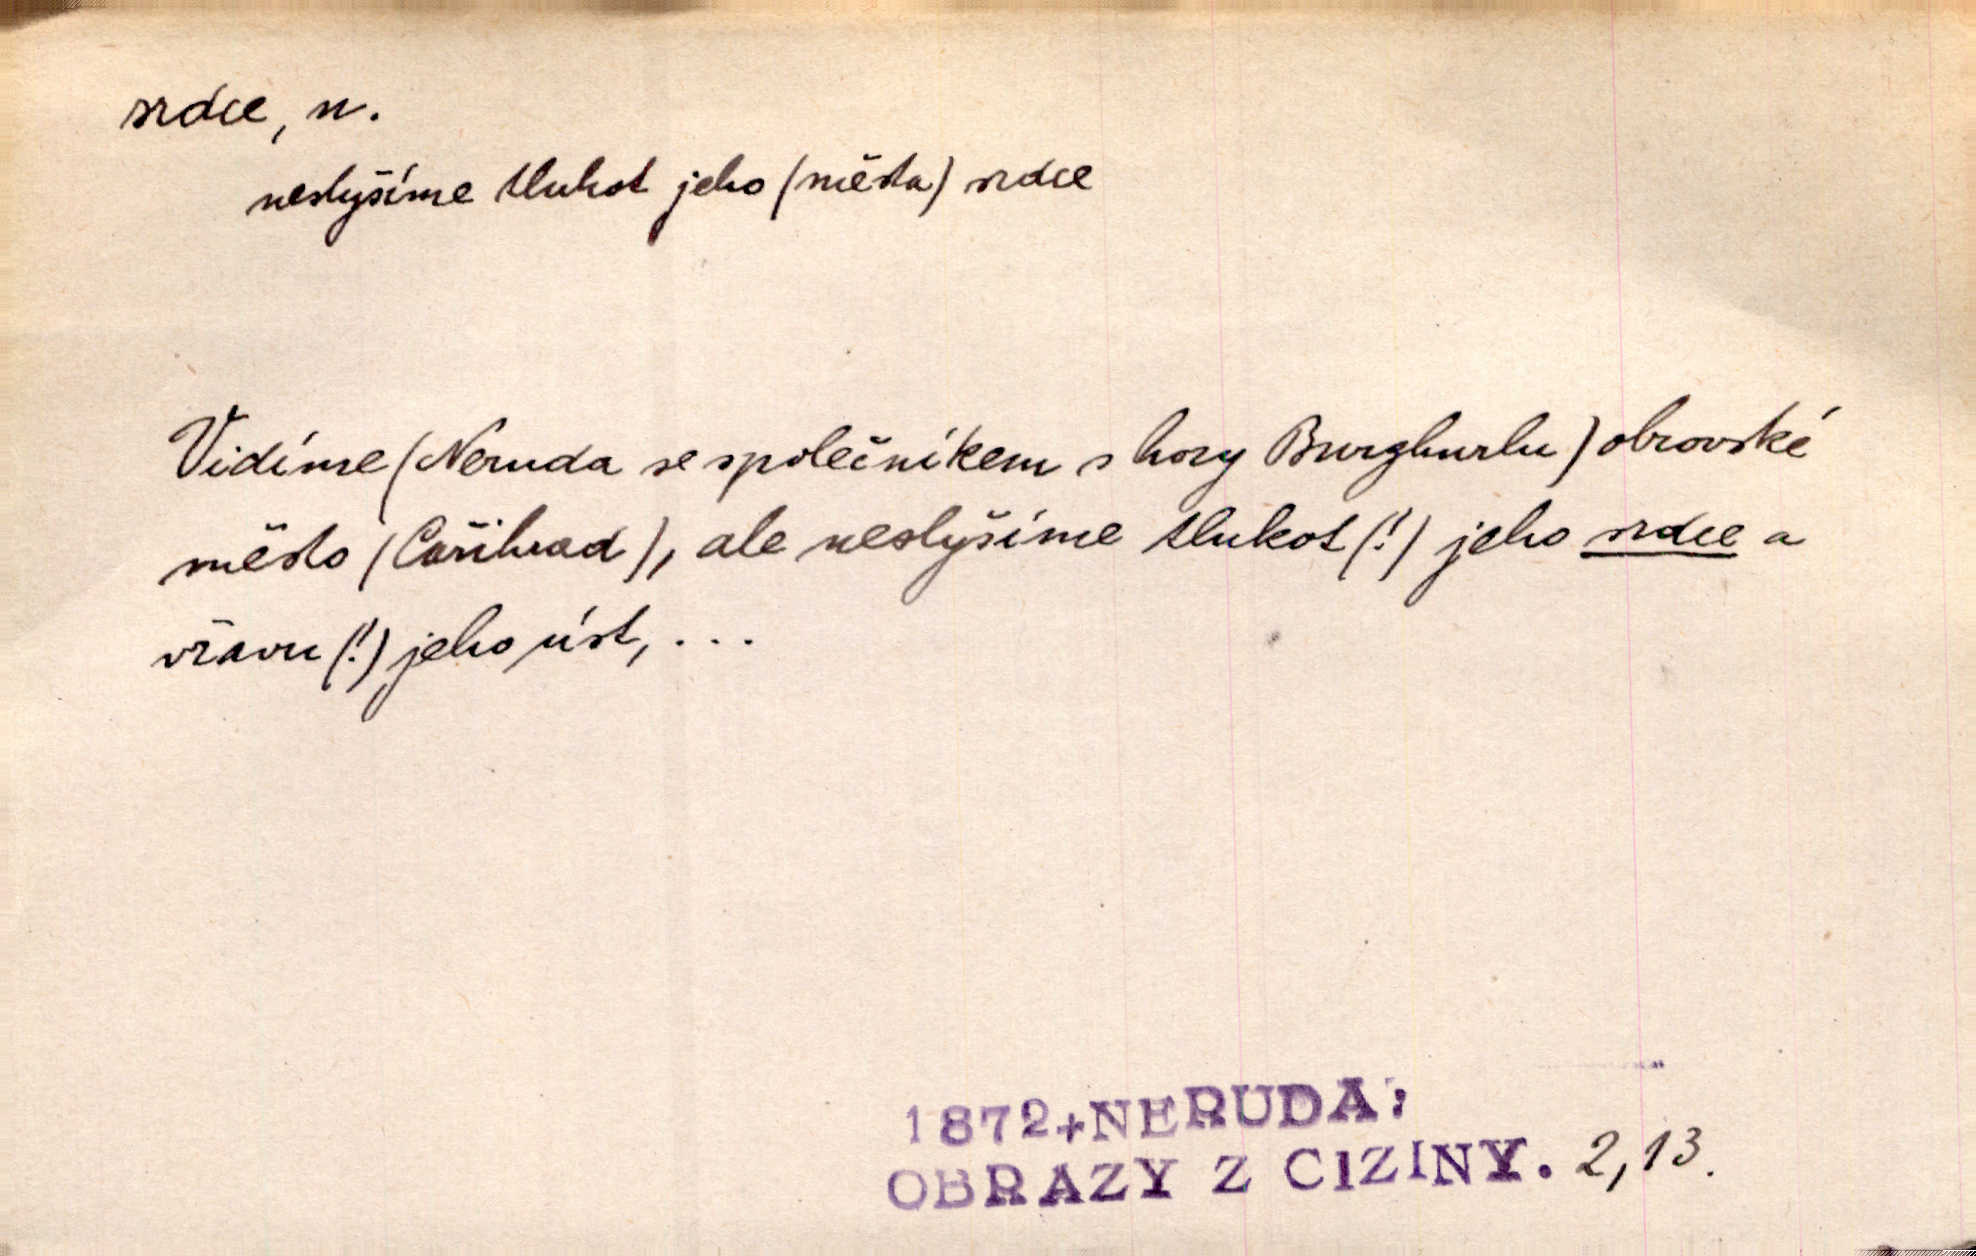 srdce, n.
neslyšíme tlukot jeho (města) srdce
Vidíme (Neruda se společníkem s hory Burghurlu) obrovské
město (Cařihrad), ale neslyšíme tlukot (!) jeho srdce a
vřavu (!) jeho úst, ...
1872+NERUDA:
OBRAZY Z CIZINY. 2,13.